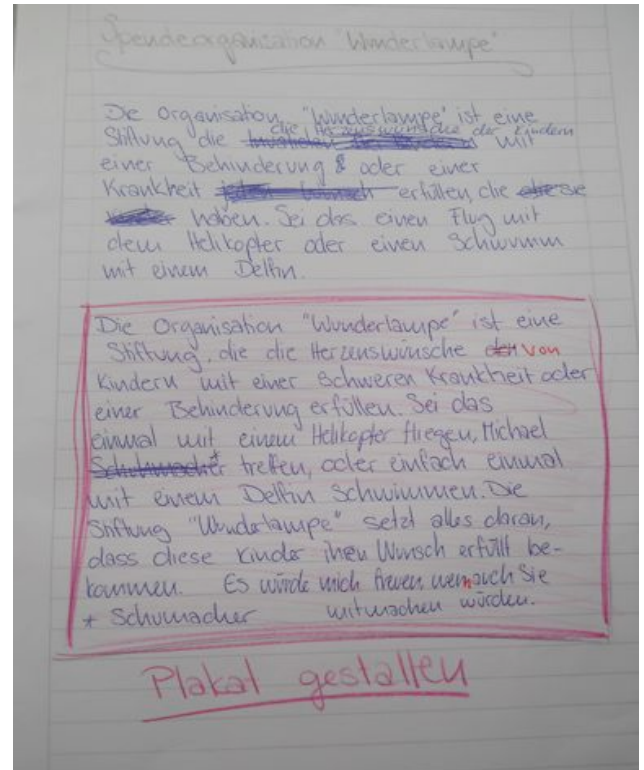 Spendeorganisation "Wunderlampe"
Die Organisation "Wunderlampe" ist eine
die Herzenswünsche der Kindern
Stiftung die mit
einer Behinderung oder einer
Krankheit erfüllen, die
haben. Sei das einen Flug mit
dem Helikopter oder einen Schwumm
mit einem Delfin.
Die Organisation "Wunderlampe" ist eine
Stiftung, die die Herzenswünsche den von
Kindern mit einer Schweren Krankheit oder
einer Behinderung erfüllen. Sei das
einmal mit einem Helikopter fliegen, Michael
Schuhmacher* treffen, oder einfach einmal
mit einem Delfin Schwimmen. Die
Stiftung "Wunderlampe" setzt alles daran,
dass diese Kinder ihren Wunsch erfüllt be-
kommen. Es würde mich freuen, wenn auch Sie
* Schumacher mitmachen würden.
Plakat gestalten